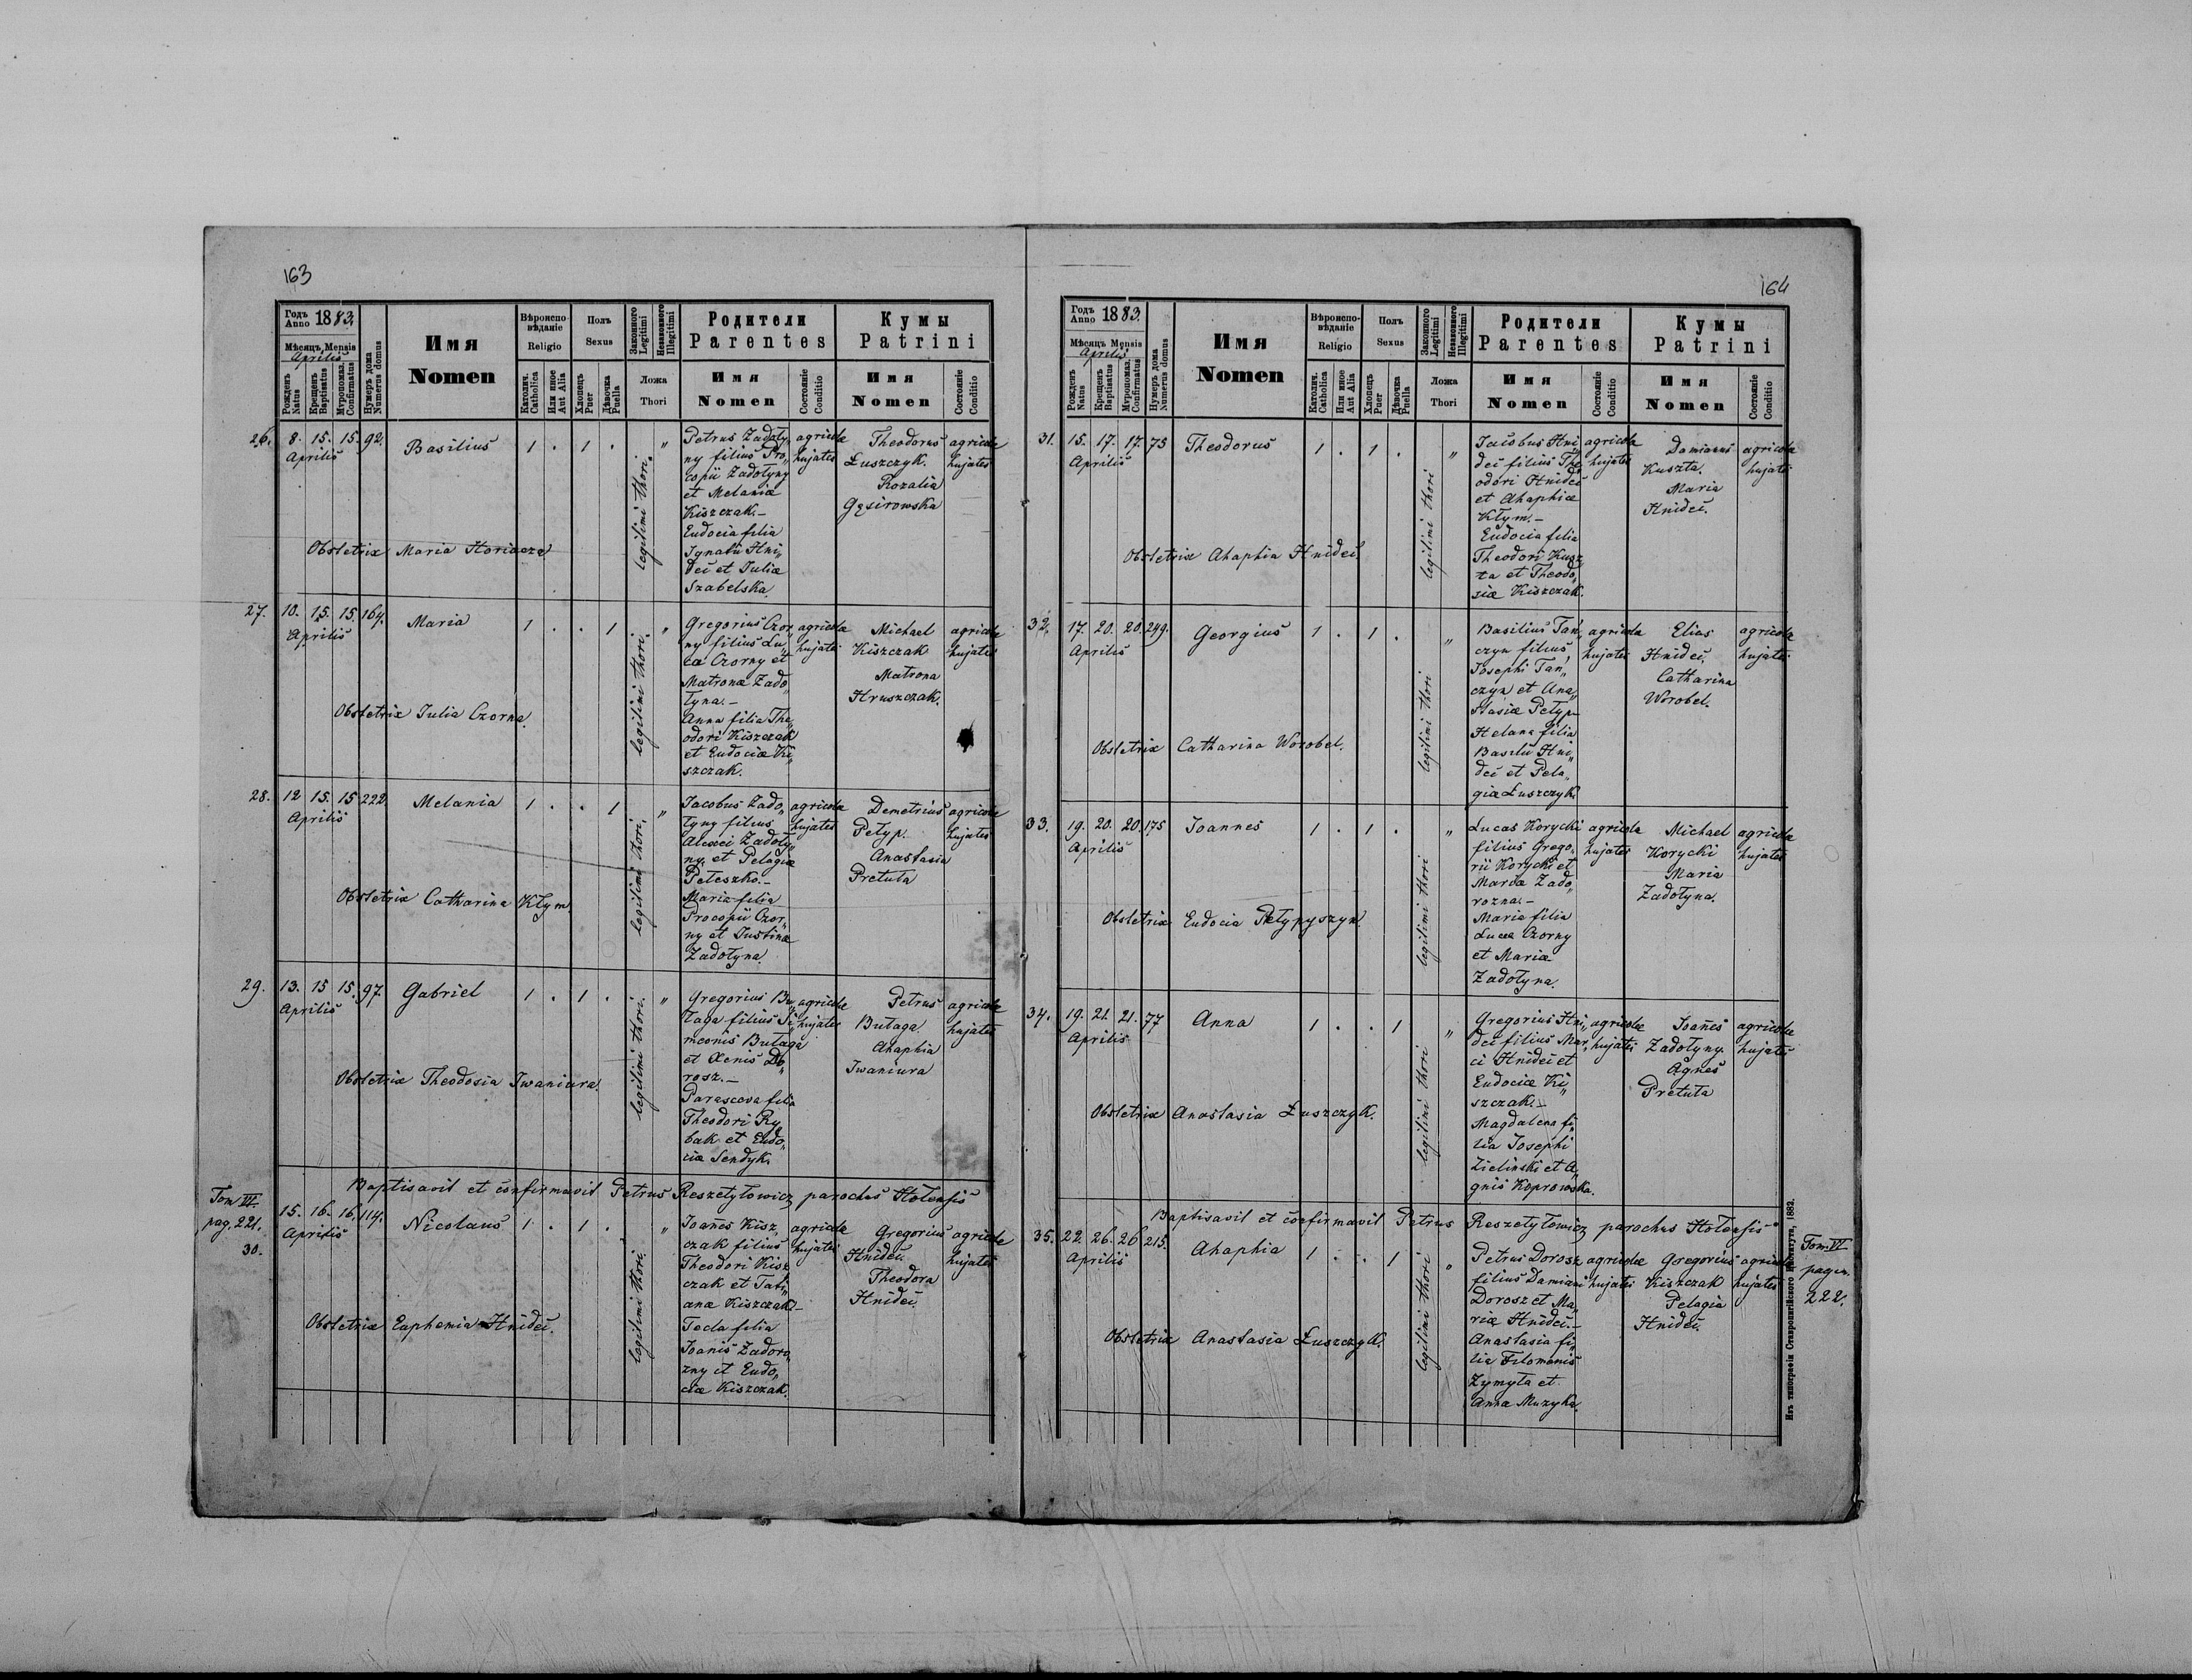 163
Годъ Anno 1883.
Мѣсяцъ Mensis
Aprilis
Рожденъ Natus
Крещенъ Baptisatus
Мѵропомаз. Confirmatus
Нумеръ дома Numerus domus
Имя
Nomen
Вѣроисповѣданіе
Religio
Католич. Catholica
Или иное Aut Alia
Полъ
Sexus
Хлопецъ Puer
Дѣвочка Puella
Законного Legitimi
Незаконного Illegitimi
Ложа
Thori
Родители
Parentes
Имя
Nomen
Состояніе Conditio
Кумы
Patrini
Имя
Nomen
Состояніе Conditio
26. 8. 15. 15. 92. Basilius 1 . 1 . "
Aprilis
legitimi thori.
Petrus Zadoły„
ny filius Pro„
copii Zadołyny
et Melaniæ
Kiszczak.–
Eudocia filia
Ignatii Hni„
deć et Juliæ
Szabelska.
agricolæ
hujates
Theodorus
Łuszczyk.
Rozalia
Gąsirowska
agricolæ
hujates
Obstetrix Maria Horiacza
27. 10. 15. 15. 164. Maria 1 . . 1 "
Aprilis
legitimi thori.
Gregorius Czor„
ny filius Lu„
cæ Czorny et
Matronæ Zado„
łyna.–
Anna filia The„
odori Kiszczak
et Eudociæ Ki„
szczak.
agricolæ
hujates
Michael
Kiszczak
Matrona
Hruszczak.
agricolæ
hujates
Obstetrix Julia Czorna.
28. 12 15. 15 222. Melania 1 . . 1 "
Aprilis
legitimi thori.
Jacobus Zado„
łyny filius
Alexei Zadoły„
ny et Pelagiæ
Peleszko.–
Maria filia
Procopii Czor„
ny et Justinæ
Zadołyna.
agricolæ
hujates
Demetrius
Petyp.
Anastasia
Pretuła
agricolæ
hujates
Obstetrix Catharina Kłym.
29. 13. 15 15. 97. Gabriel 1 . 1 . "
Aprilis
legitimi thori.
Gregorius Bu„
łaga filius Si„
meonis Bułaga
et Xenis Do„
rosz.–
Parasceva filia
Theodori Ry„
bak et Eudo„
ciæ Sendyk.
agricolæ
hujates
Petrus
Bułaga.
Ahaphia
Iwaniura
agricolæ
hujates
Obstetrix Theodosia Iwaniura.
Baptisavit et confirmavit Petrus Reszetyłowicz parochus Hołensis
Tom VI.
pag. 221.
30. 15. 16. 16. 114. Nicolaus 1 . 1 . "
Aprilis
legitimi thori.
Joañes Kisz„
czak filius
Theodori Kisz„
czak et Tati„
anæ Kiszczak.–
Tecla filia
Joanis Zadoro„
zny et Eudo„
ciæ Kiszczak.
agricolæ
hujates
Gregorius
Hnideć.
Theodora
Hnideć.
agricolæ
hujates
Obstetrix Euphemia Hnideć.
164
Годъ Anno 1883.
Мѣсяцъ Mensis
Aprilis
Рожденъ Natus
Крещенъ Baptisatus
Мѵропомаз. Confirmatus
Нумеръ дома Numerus domus
Имя
Nomen
Вѣроисповѣданіе
Religio
Католич. Catholica
Или иное Aut Alia
Полъ
Sexus
Хлопецъ Puer
Дѣвочка Puella
Законного Legitimi
Незаконного Illegitimi
Ложа
Thori
Родители
Parentes
Имя
Nomen
Состояніе Conditio
Кумы
Patrini
Имя
Nomen
Состояніе Conditio
31. 15. 17. 17. 75 Theodorus 1 . 1 . "
Aprilis
legitimi thori
Jacobus Hni„
deć filius The„
odori Hnideć
et Ahaphiæ
Kłym.–
Eudocia filia
Theodori Kusz„
ta et Theodo„
siæ Kiszczak.
agricolæ
hujates
Damianus
Kuszta.
Maria
Hnideć.
agricolæ
hujates
Obstetrix Ahaphia Hnideć.
32. 17. 20. 20. 249. Georgius 1 . 1 . "
Aprilis
legitimi thori
Basilius Tań„
czyn filius
Josephi Tań„
czyn et Ana„
stasiæ Petyp–
Helena filia
Basilii Hni„
deć et Pela„
giæ Łuszczyk.
agricolæ
hujates
Elias
Hnideć.
Catharina
Worobel.
agricolæ
hujates
Obstetrix Catharina Worobel.
33. 19. 20. 20. 175 Joannes 1 . 1 . "
Aprilis
legitimi thori
Lucas Korycki
filius Grego„
rii Korycki et
Mariæ Zado„
rozna.–
Maria filia
Lucæ Czorny
et Mariæ
Zadołyna.
agricolæ
hujates
Michael
Korycki
Maria
Zadołyna.
agricolæ
hujates
Obstetrix Eudocia Petypyszyn.
34. 19. 21. 21. 77 Anna 1 . . 1 "
Aprilis
legitimi thori
Gregorius Hni„
deć filius Mar„
ci Hnideć et
Eudociæ Ki„
szczak.–
Magdalena fi„
lia Josephi
Zielinski et A„
gnis Koprowska.
agricolæ
hujates
Joañes
Zadołyny.
Agnes
Pretuła
agricolæ
hujates
Obstetrix Anastasia Łuszczyk.
Baptisavit et confirmavit Petrus Reszetyłowicz parochus Hołensis
35. 22. 26. 26 215. Ahaphia 1 . . 1 "
Aprilis
legitimi thori
Petrus Dorosz
filius Damiani
Dorosz et Ma„
riæ Hnideć.–
Anastasia fi„
lia Filomonis
Zymyła et
Anna Muzyka.
agricolæ
hujates
Gregorius
Kiszczak
Pelagia
Hnideć.
agricolæ
hujates
Tom. VI
pagin.
222.
Obstetrix Anastasia Łuszczyk.
Изъ типографіи Ставропигійского Института, 1882.